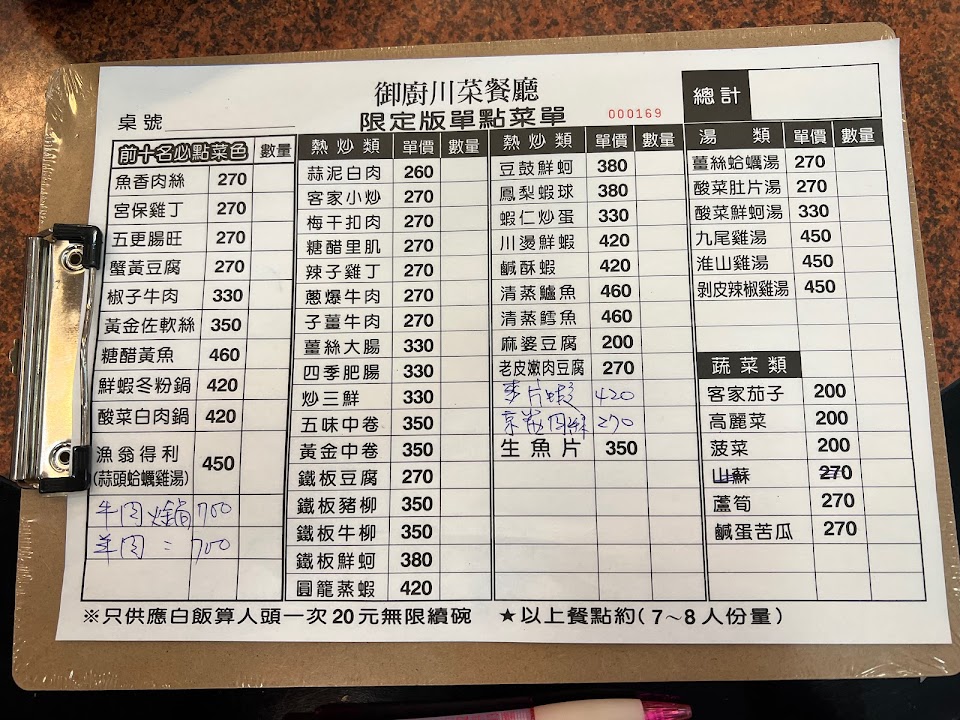 御廚川菜餐廳
限定版單點菜單
000169
總計
桌號
前十名必點菜色 數量
魚香肉絲 270
宮保雞丁 270
五更腸旺 270
蟹黃豆腐 270
椒子牛肉 330
黃金佐軟絲 350
糖醋黃魚 460
鮮蝦冬粉鍋 420
酸菜白肉鍋 420
漁翁得利 450
(蒜頭蛤蠣雞湯)
牛肉爐鍋 700
羊肉 〃 700
熱炒類 單價 數量
蒜泥白肉 260
客家小炒 270
梅干扣肉 270
糖醋里肌 270
辣子雞丁 270
蔥爆牛肉 270
子薑牛肉 270
薑絲大腸 330
四季肥腸 330
炒三鮮 330
五味中卷 350
黃金中卷 350
鐵板豆腐 270
鐵板豬柳 350
鐵板牛柳 350
鐵板鮮蚵 380
圓籠蒸蝦 420
熱炒類 單價 數量
豆鼓鮮蚵 380
鳳梨蝦球 380
蝦仁炒蛋 330
川燙鮮蝦 420
鹹酥蝦 420
清蒸鱸魚 460
清蒸鱈魚 460
麻婆豆腐 200
老皮嫩肉豆腐 270
麥片蝦 420
京醬肉絲 270
生魚片 350
湯類 單價 數量
薑絲蛤蠣湯 270
酸菜肚片湯 270
酸菜鮮蚵湯 330
九尾雞湯 450
淮山雞湯 450
剝皮辣椒雞湯 450
蔬菜類
客家茄子 200
高麗菜 200
菠菜 200
山蘇 270
蘆筍 270
鹹蛋苦瓜 270
※只供應白飯算人頭一次20元無限續碗 ★以上餐點約(7～8人份量)